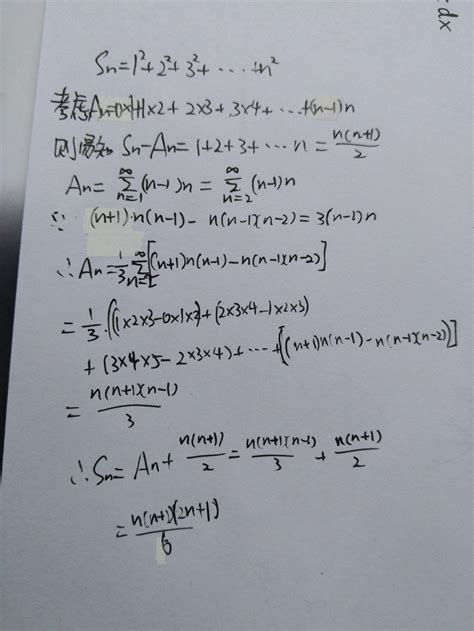 =dx
Sn=1²+2²+3²+…+n²
考虑An=0×1+1×2+2×3+3×4+…+(n-1)n
则易知 Sn-An=1+2+3+…n=n(n+1)/2
An=∞∑n=1(n-1)n=∞∑n=2(n-1)n
∵(n+1)·n(n-1)-n(n-1)(n-2)=3(n-1)n
∴An=1/3∞∑n=2[(n+1)n(n-1)-n(n-1)(n-2)]
=1/3·[(1×2×3-0×1×2)+(2×3×4-1×2×3)
+(3×4×5-2×3×4)+…+[(n+1)n(n-1)-n(n-1)(n-2)]
=n(n+1)(n-1)/3
∴Sn=An+n(n+1)/2=n(n+1)(n-1)/3+n(n+1)/2
=n(n+1)(2n+1)/6